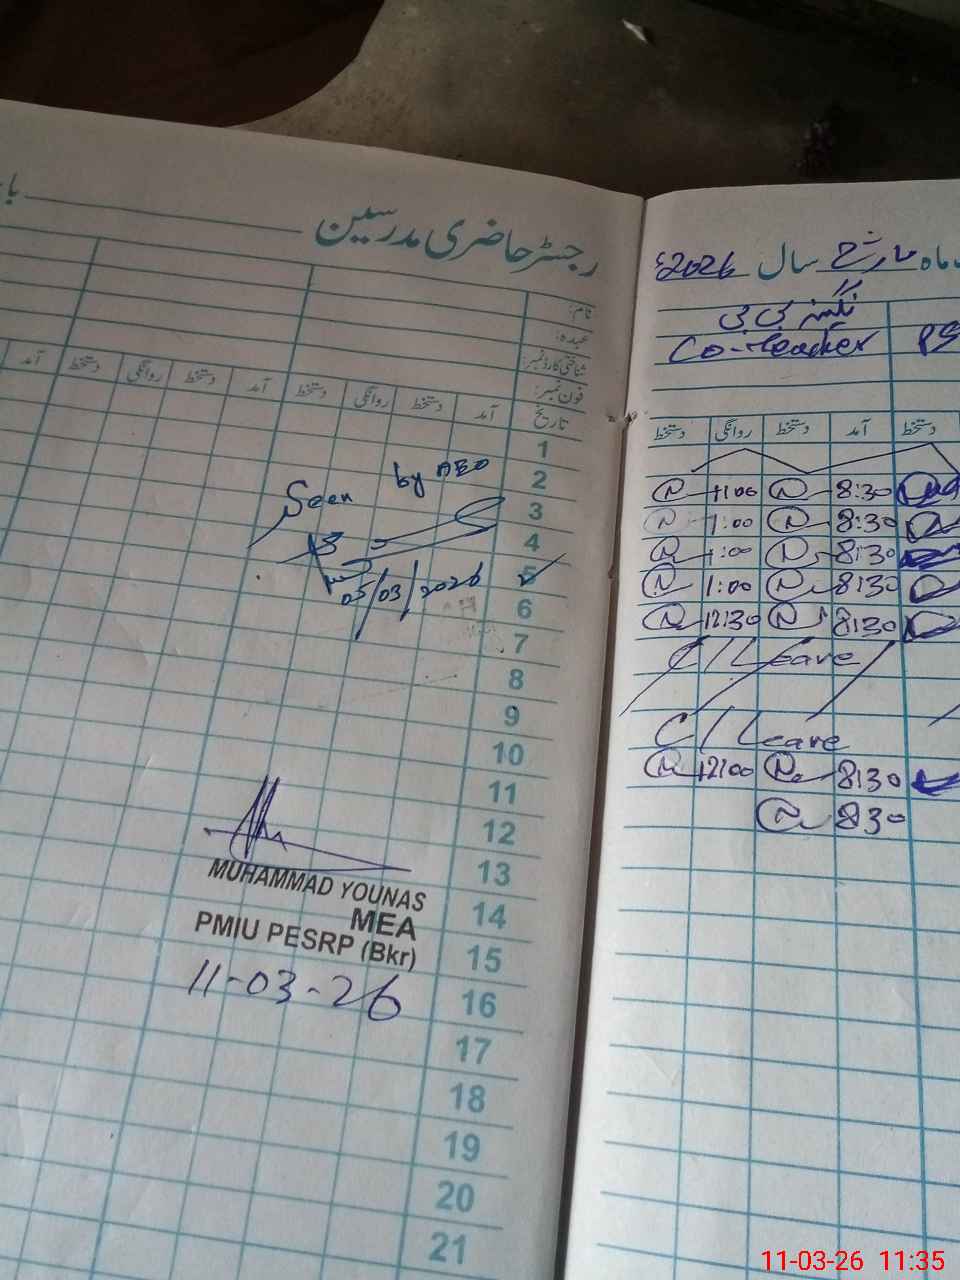 رجسٹر حاضری مدرسین
نام:
عہدہ:
شناختی کارڈ نمبر:
فون نمبر:
تاریخ آمد دستخط روانگی دستخط آمد دستخط روانگی دستخط آمد
1
2
3
4
5
6
7
8
9
10
11
12
13
14
15
16
17
18
19
20
21
Seen by AEO
05/03/2026
MUHAMMAD YOUNAS
MEA
PMIU PESRP (Bkr)
11-03-26
ماہ مارچ سال 2026ء
Co-teacher
دستخط آمد دستخط روانگی دستخط
8:30 1:00
8:30 1:00
8:30 1:00
8:30 1:00
8:30 12:30
C/Leave
C/Leave
8:30 12:00
8:30
11-03-26 11:35